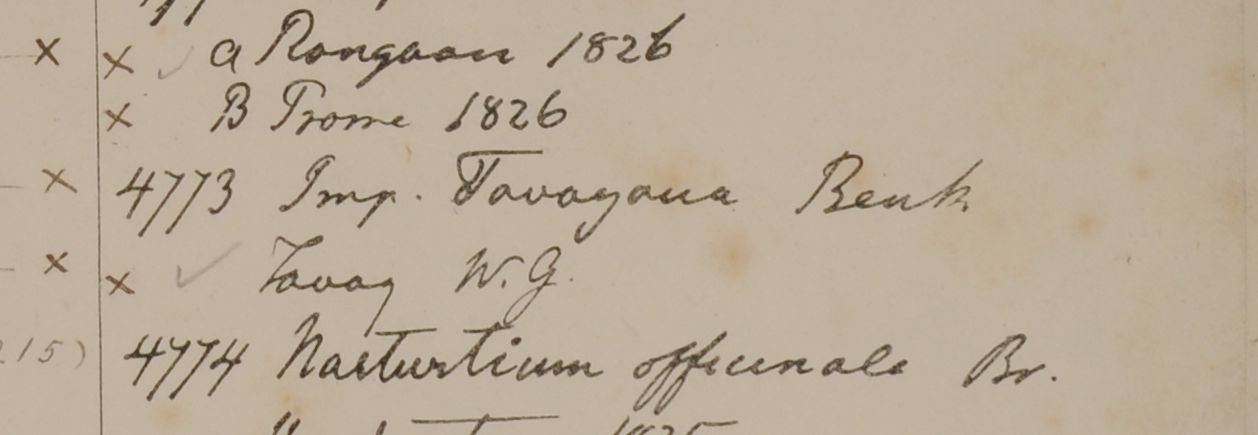 a Rangoon 1826
B Prome 1826
4773 Imp. Tavoyana Benth
Tavoy W.G.
215) 4774 Nasturtium officinale Br.
1825